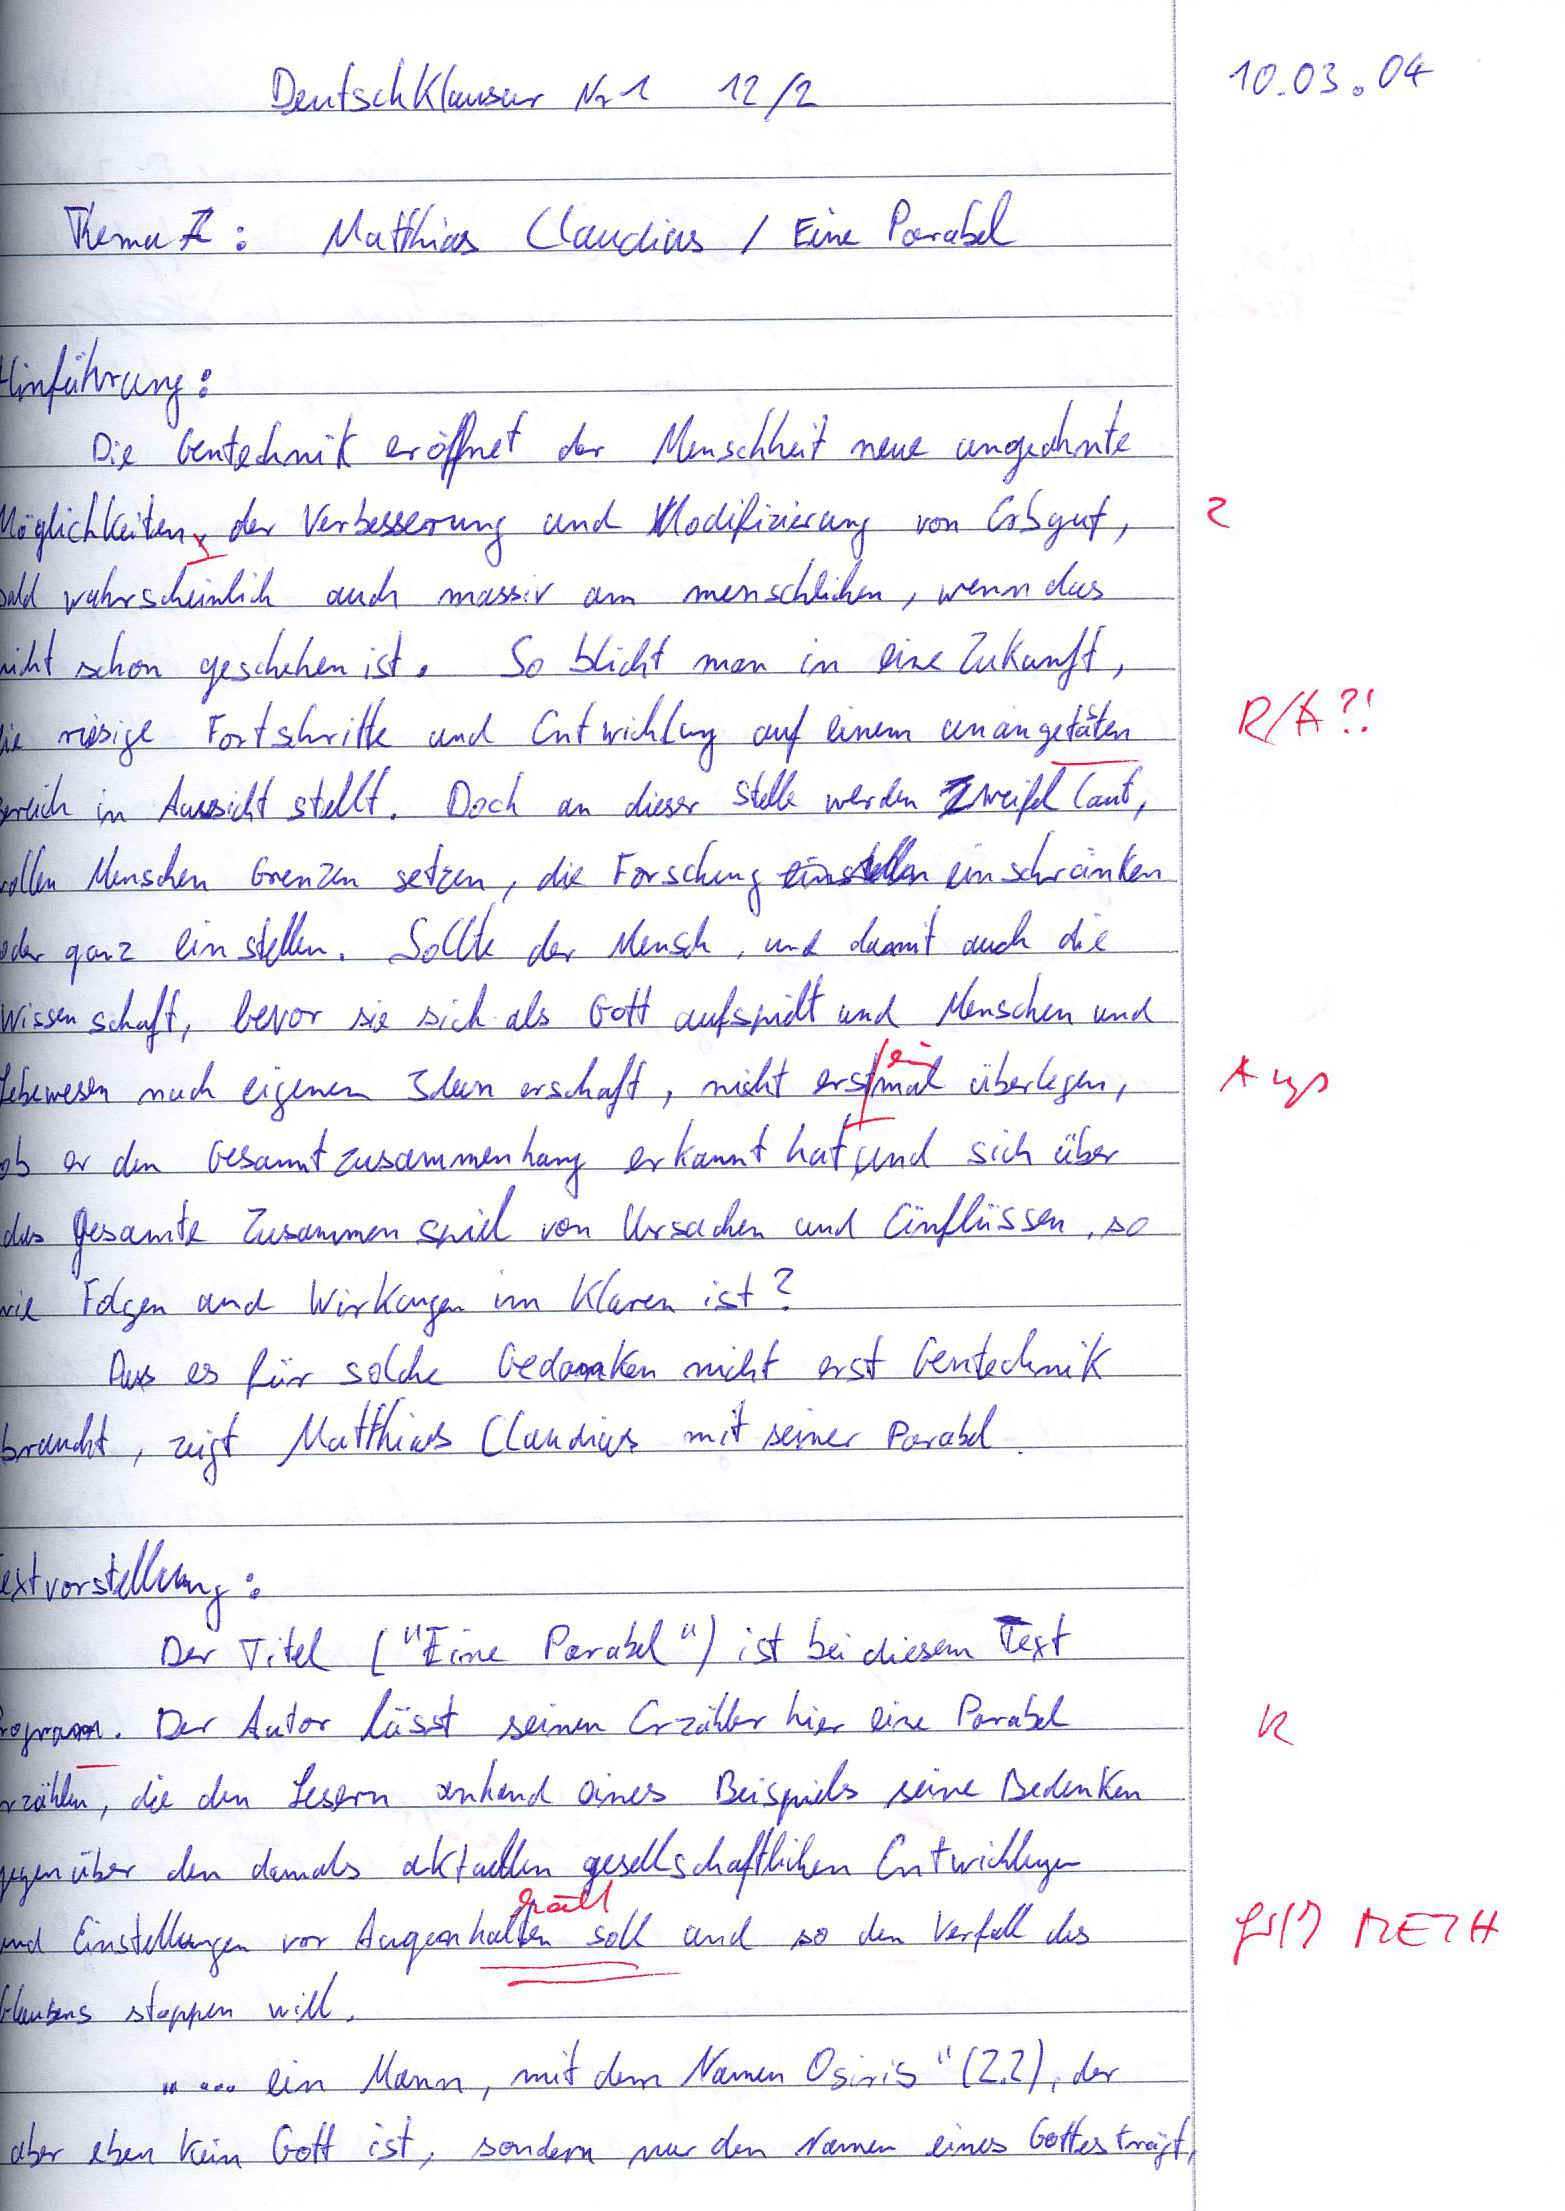 Deutschklausur Nr 1 12/2 10.03.04
Thema : Matthias Claudius / Eine Parabel
Hinführung:
Die Gentechnik eröffnet der Menschheit neue ungeahnte
Möglichkeiten, der Verbesserung und Modifizierung von Erbgut, Z
bald wahrscheinlich auch massiv am menschlichen, wenn das
nicht schon geschehen ist. So blickt man in eine Zukunft,
die riesige Fortschritte und Entwicklung auf einem unangetäten R/A?!
Bereich in Aussicht stellt. Doch an dieser Stelle werden Zweifel laut,
wollen Menschen Grenzen setzen, die Forschung einstellen einschränken
oder ganz einstellen. Sollte der Mensch, und damit auch die
Wissenschaft, bevor sie sich als Gott aufspielt und Menschen und
ein
Lebewesen nach eigenen Ideen erschaft, nicht erst mal überlegen, A
ob er den Gesamtzusammenhang erkannt hat, und sich über
das gesamte Zusammenspiel von Ursachen und Einflüssen, so
wie Folgen und Wirkungen im Klaren ist?
Das es für solche Gedanken nicht erst Gentechnik
braucht, zeigt Matthias Claudius mit seiner Parabel.
Textvorstellung:
Der Titel ("Eine Parabel") ist bei diesem Text
Program. Der Autor lässt seinen Erzähler hier eine Parabel R
erzählen, die den Lesern anhand eines Beispiels seine Bedenken
gegenüber den damals aktuellen gesellschaftlichen Entwicklungen
und Einstellungen vor Augen halten soll und so den Verfall des METH
Glaubens stoppen will.
"... ein Mann, mit dem Namen Osiris" (Z.2), der
aber eben kein Gott ist, sondern nur den Namen eines Gottes trägt,